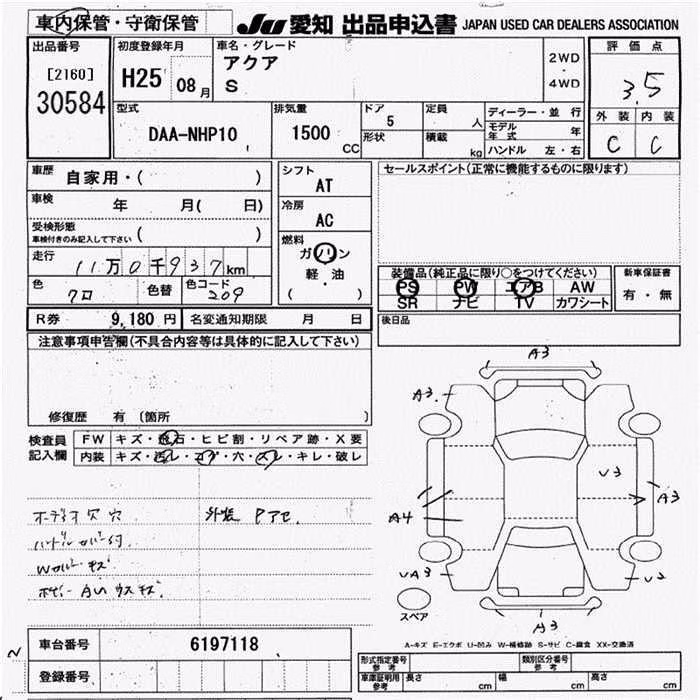 車内保管・守衛保管
JU 愛知 出品申込書 JAPAN USED CAR DEALERS ASSOCIATION
出品番号
[2160]
30584
初度登録年月
H25 08月
車名・グレード
アクア
S
2WD
・
4WD
評価点
3.5
外装 内装
C C
型式
DAA-NHP10
排気量
1500 CC
ドア 5
形状
定員 人
積載 kg
ディーラー・並行
モデル年式 年
ハンドル 左・右
車歴 自家用・( )
車検 年 月( 日)
受検形態
車検付きのみ記入して下さい ( )
走行 11万0千937km
色 クロ 色替 色コード 209
シフト
AT
冷房
AC
燃料
ガソリン
軽・油
( )
セールスポイント(正常に機能するものに限ります)
装備品(純正品に限り○をつけてください)
PS PW エアB AW
SR ナビ TV カワシート
新車保証書
有・無
R券 9,180円 名変通知期限 月 日
後日品
注意事項申告欄(不具合内容等は具体的に記入して下さい)
修復歴 有 〔箇所 〕
検査員記入欄
FW キズ・飛石・ヒビ割・リペア跡・X要
内装 キズ・汚レ・コゲ・穴・スレ・キレ・破レ
オーディオ欠 穴
外装 Pアセ
ハンドルカバー付
Wガルトキズ
ボデー AUウスキズ
A3
A3
V3
A3
A4
VA3
V2
A3
スペア
A-キズ E-エクボ U-凹み W-補修跡 S-サビ C-腐食 XX-交換済
車台番号 6197118
登録番号
形式指定番号 参考
類別区分番号 参考
車庫証明用 参考 長さ cm 幅 cm 高さ cm